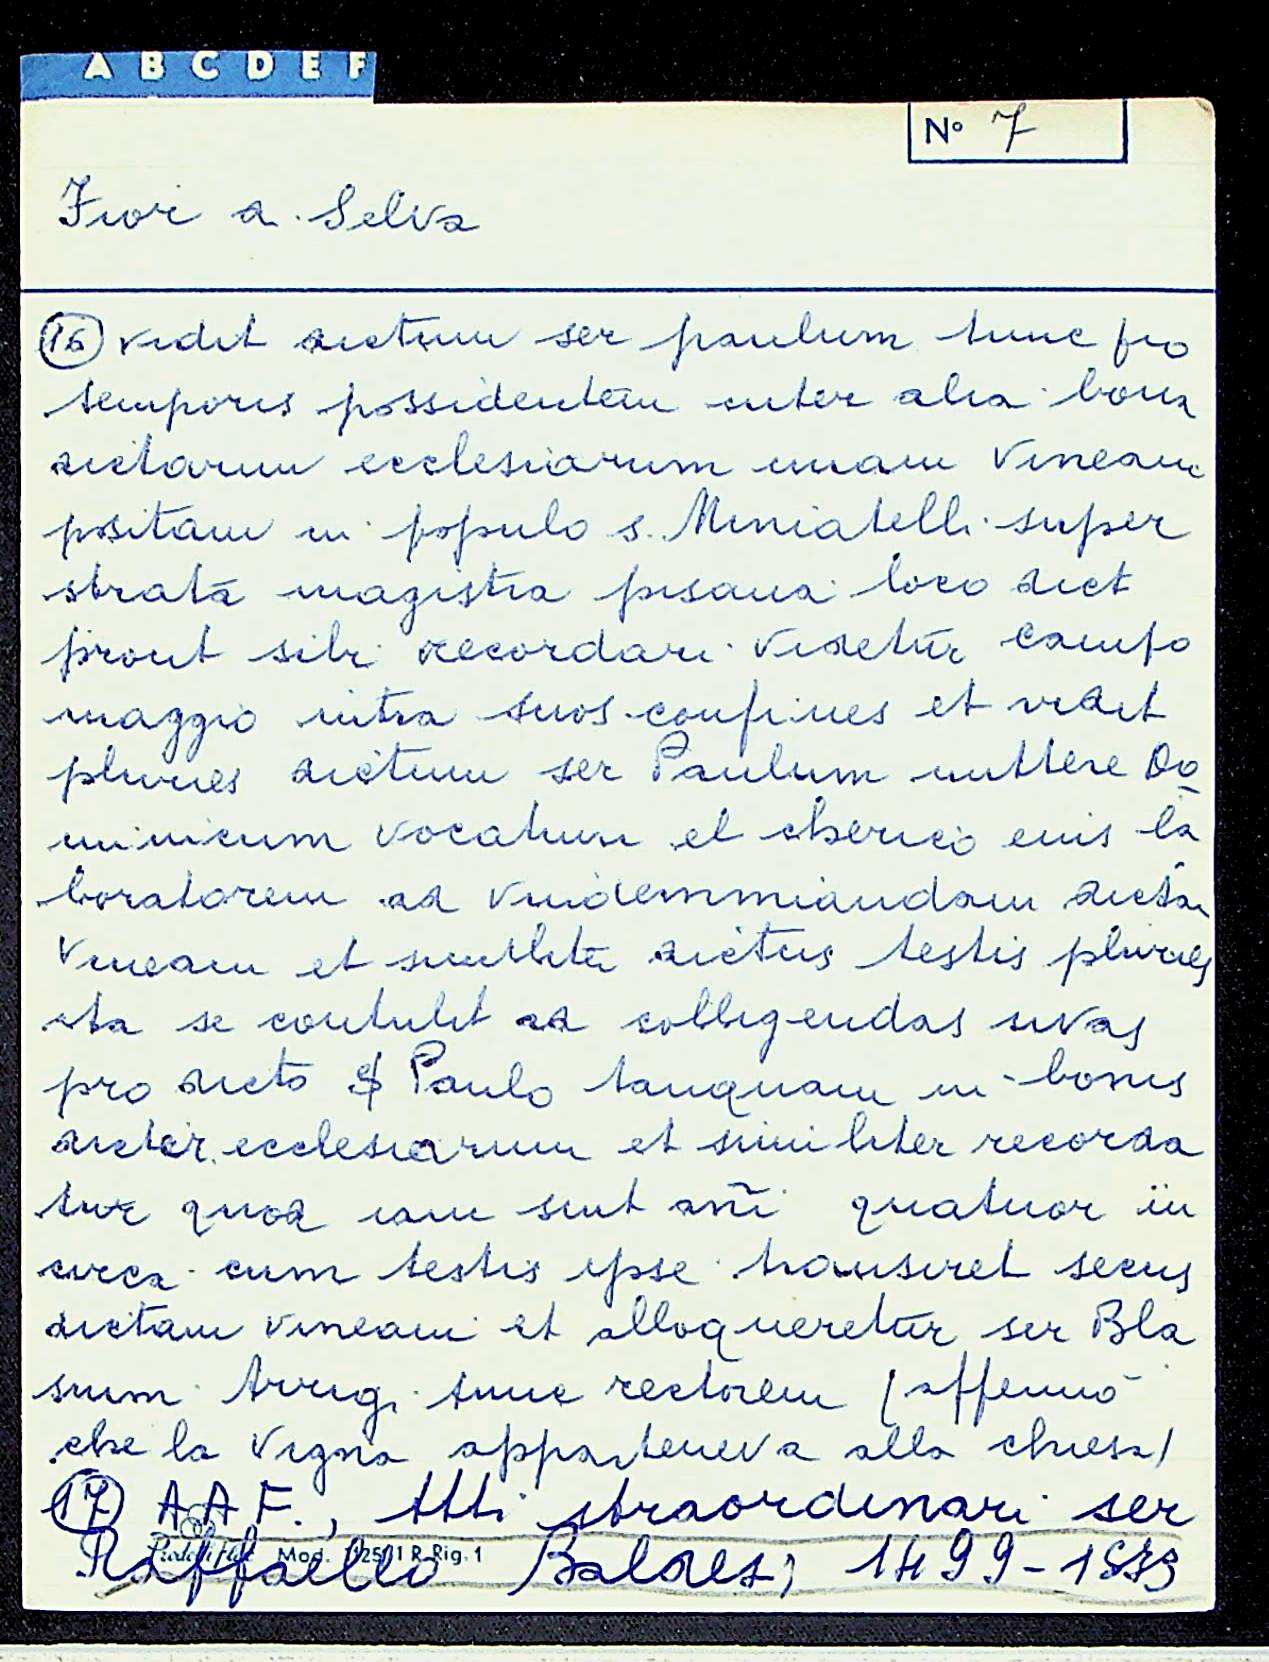 A B C D E F
N° 7
Fior a Selva
(16) vidit dictum ser paulum tunc pro
temporis possidentem inter alia bona
dictarum ecclesiarum unam vineam
positam in populo s. Miniatelli super
strata magistra pisana loco dict
prout sibi recordari videtur campo
maggio intra suos confines et vidit
pluries dictum ser Paulum mittere Do
minicum vocatum el cherico eius la
boratorem ad vindemmiandam dictam
vineam et similiter dictus testis pluries
ita se contulit ad colligendas uvas
pro dicto S Paulo tanquam in bonis
dictar. ecclesiarum et similiter recorda
tur quod iam sunt anni quatuor in
circa cum testis ipse transiret secus
dictam vineam et alloqueretur ser Bla
sium Arrig. tunc rectorem (affermò
che la vigna apparteneva alla chiesa)
(17) A A F., Atti straordinari ser
Raffaello Baldesi, 1499-1533
Mod. 12501 R Rig. 1